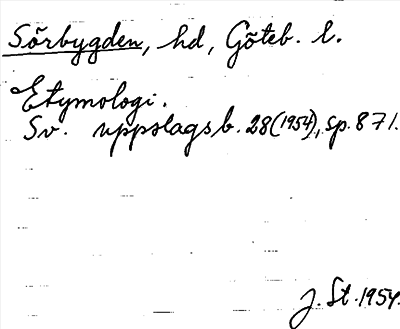 Sörbygden, hd, Göteb. l.
Etymologi.
Sv. uppslagsb. 28 (1954), sp. 871.
J. St. 1954.